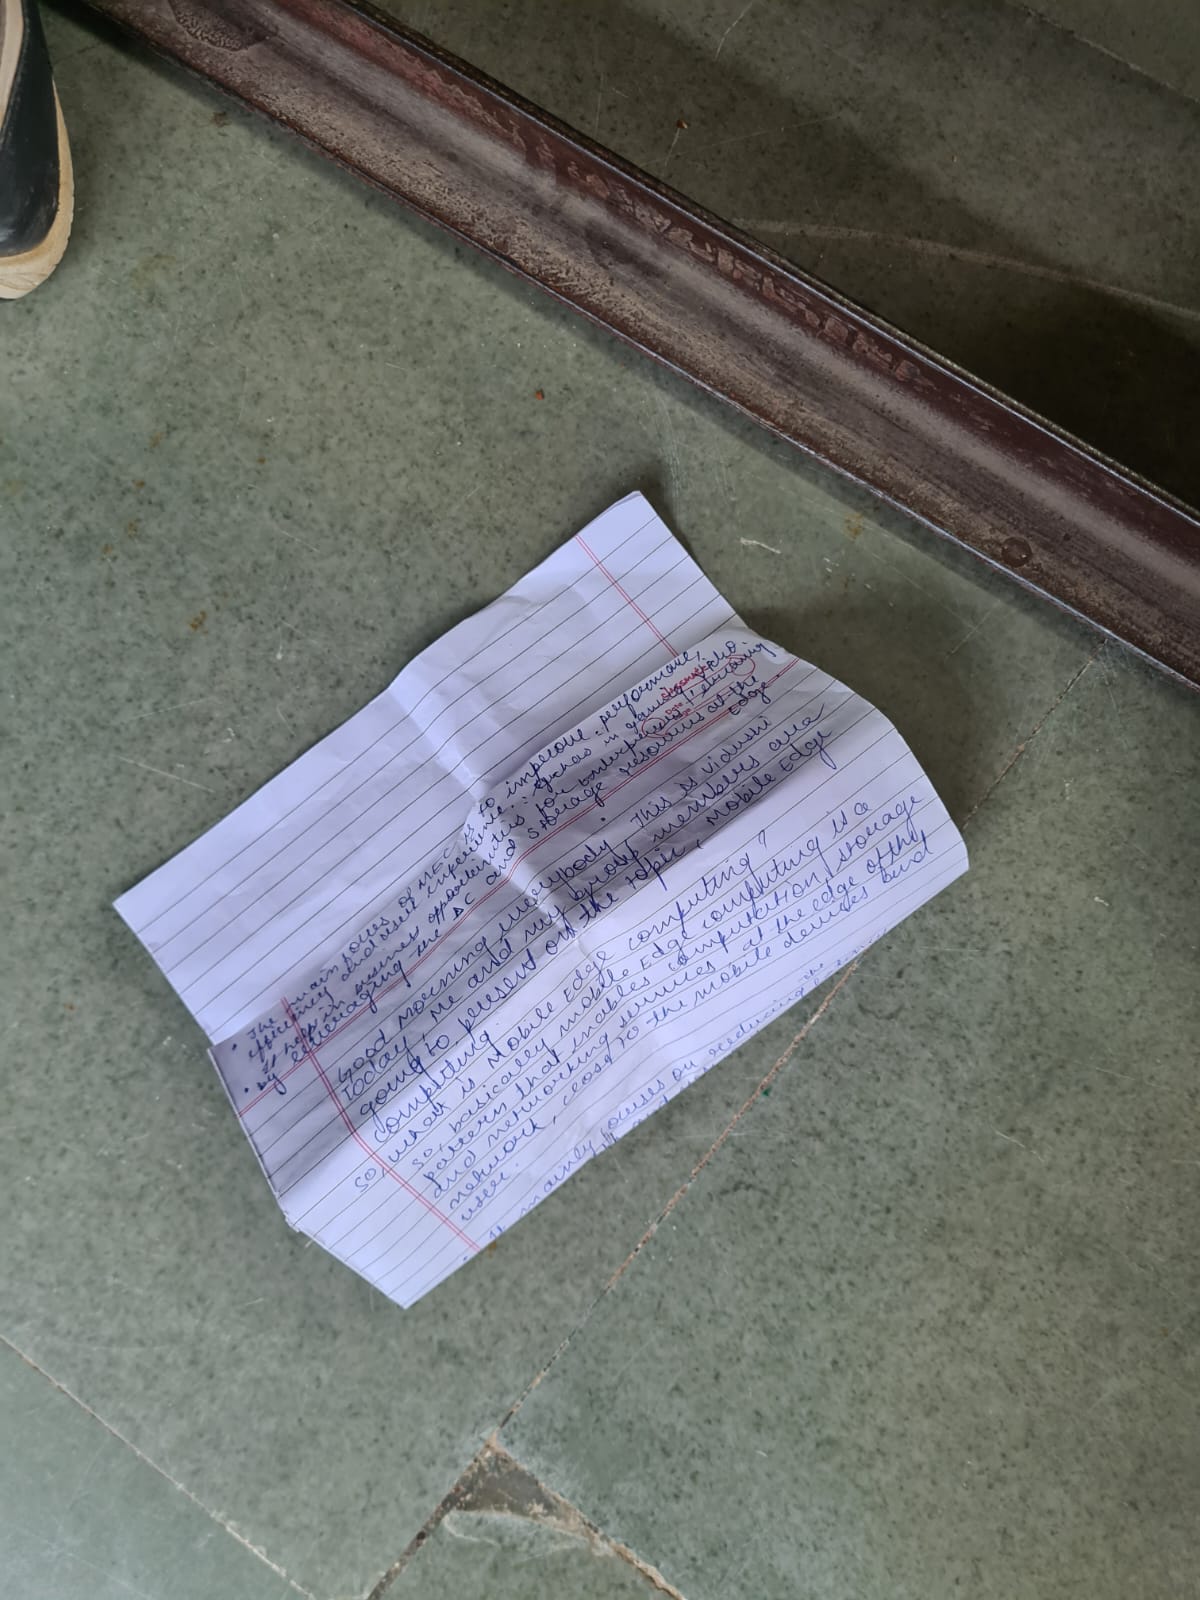 • The main focus of MEC is to improve performance,
efficiency and user experience.
It help in business opportunities for
• by leveraging the DC and storage resources at the
Edge
Good morning everybody. This is vidushi
Today, me and my group members are
going to present on the topic, Mobile Edge
Computing
So, what is Mobile Edge computing?
So, basically mobile Edge computing is a
pattern that enables computation, storage
and networking services at the edge of the
network, close to the mobile devices and
user.
• It mainly focuses on reducing the